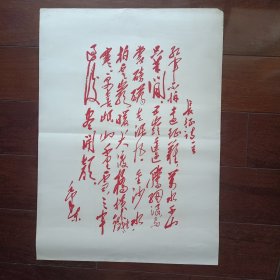 長征詩一首
紅軍不怕遠征難萬水千山
只等閒五嶺逶迤騰細浪烏
蒙磅礴走泥丸金沙水
拍雲崖暖大渡橋橫鐵索
寒更喜岷山千里雪三軍
過後盡開顏
毛澤東